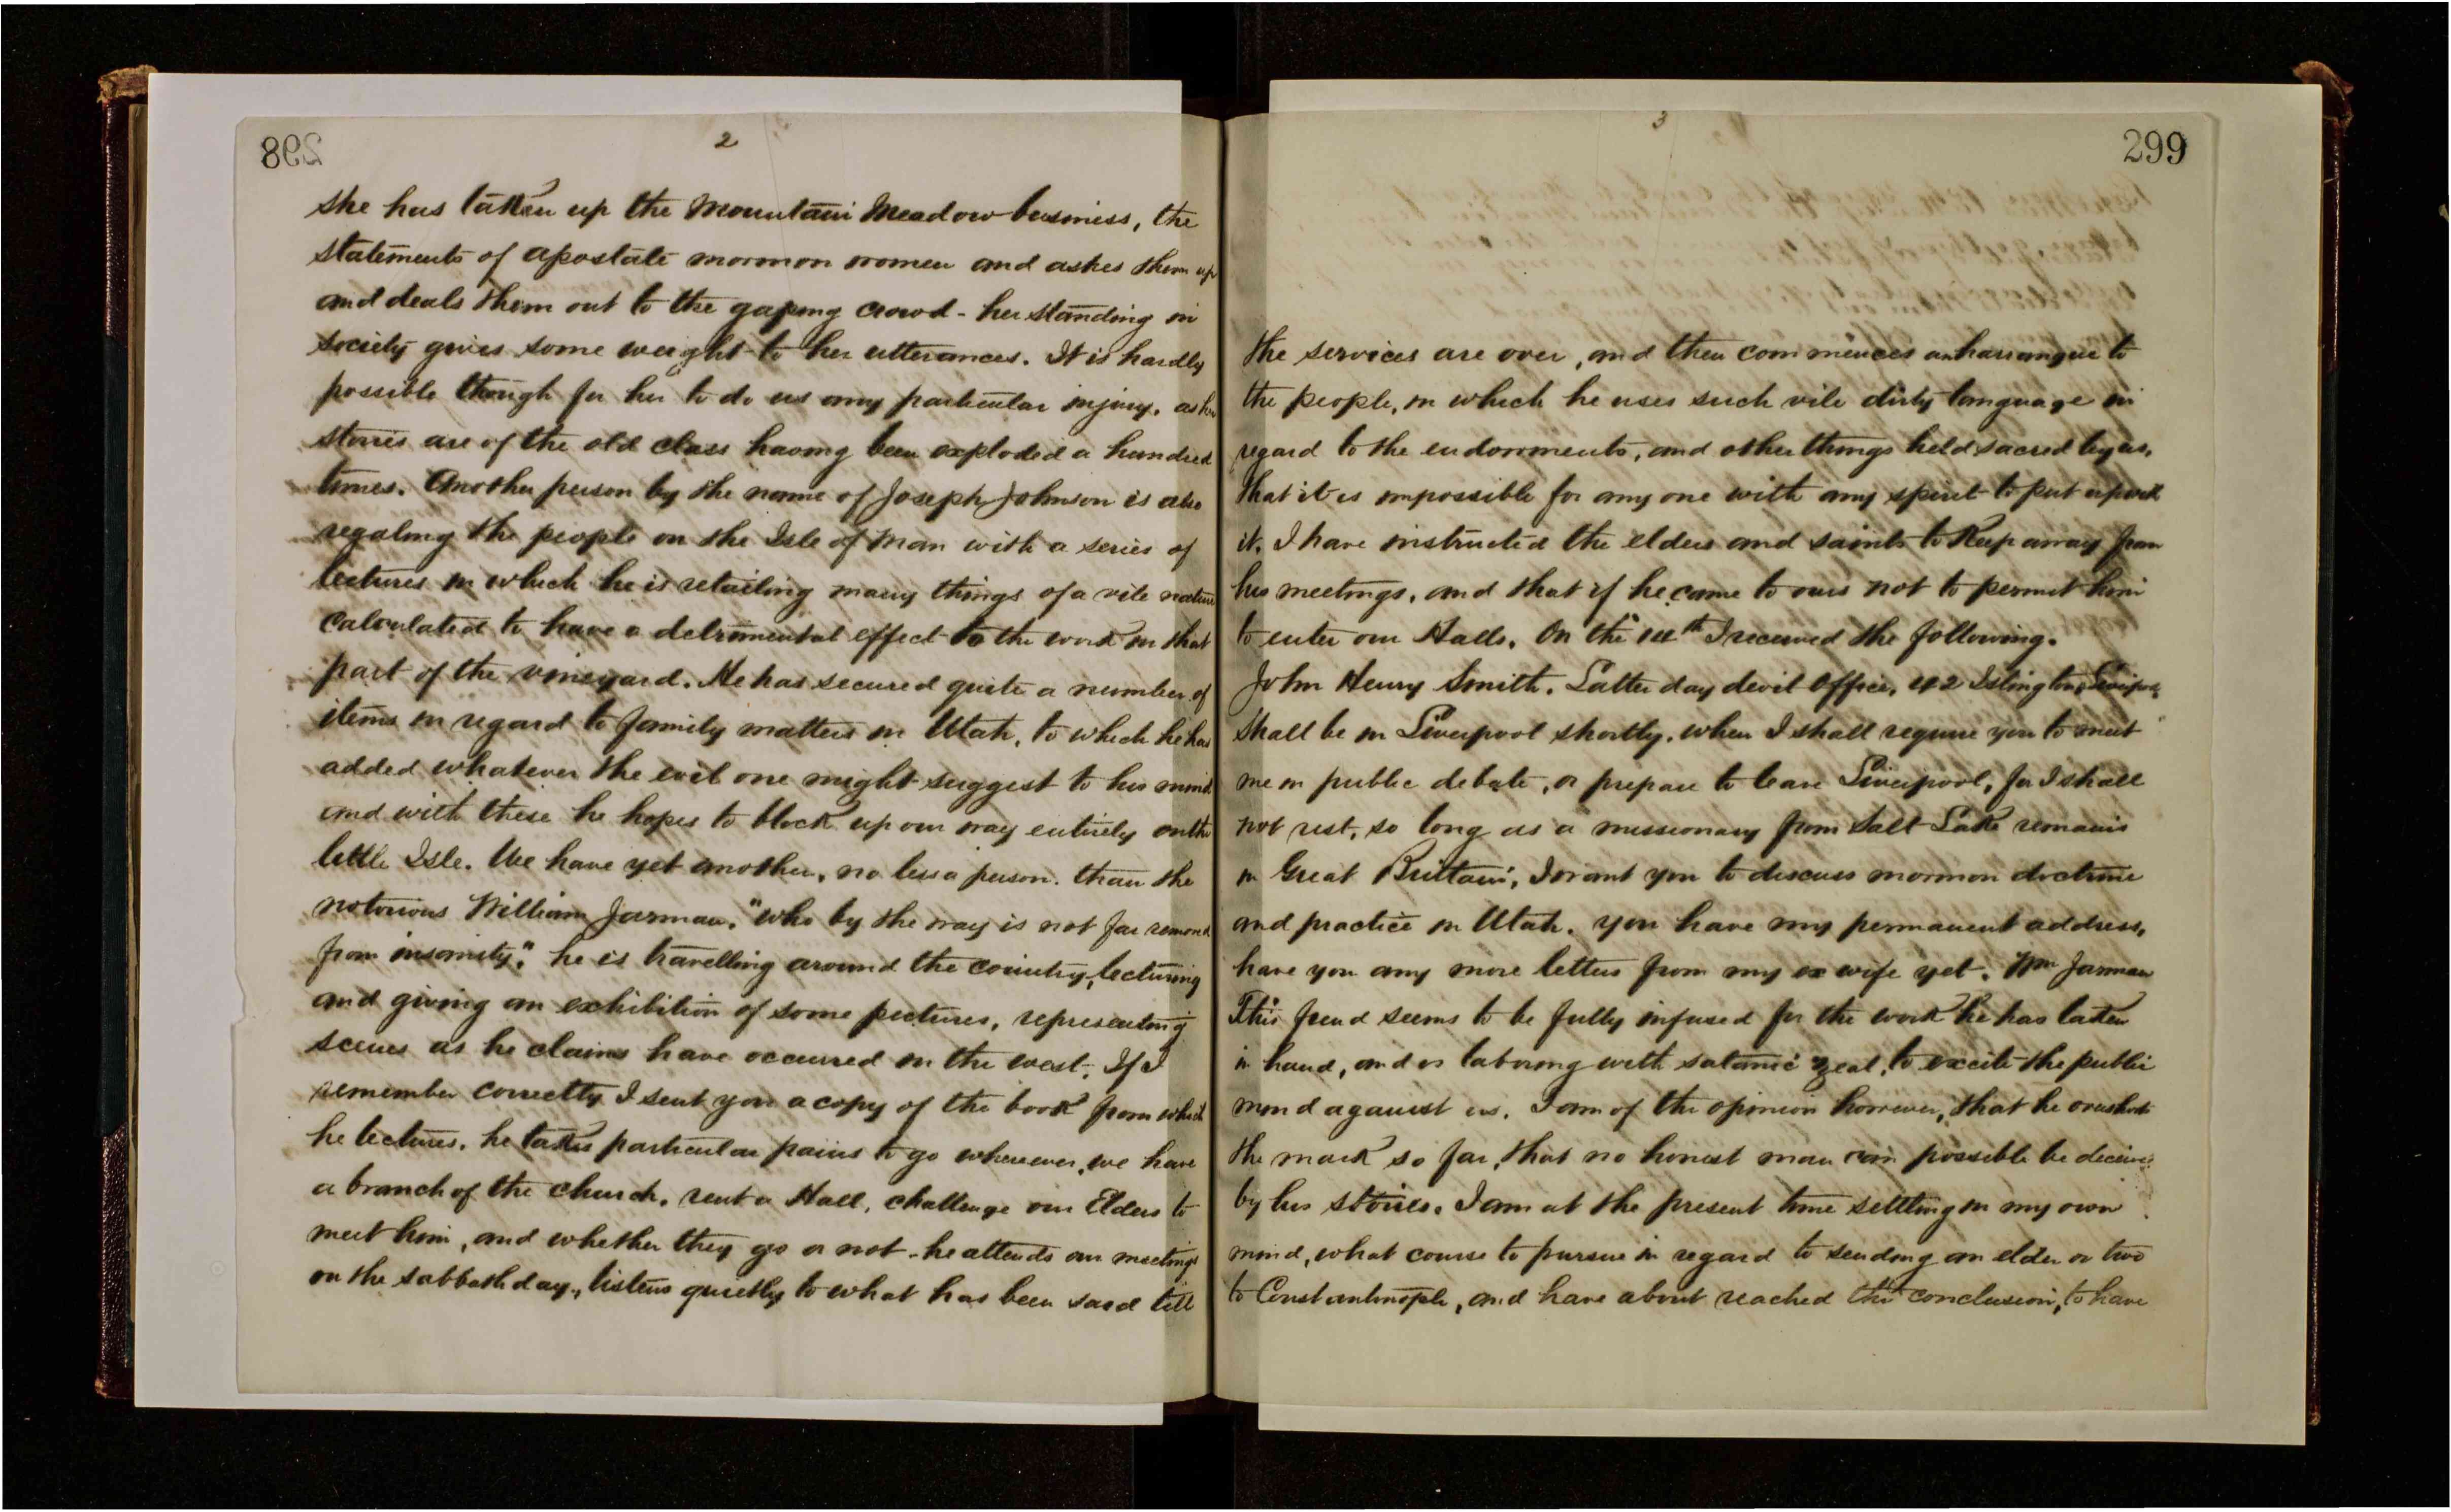 298
2
she has taken up the Mountain Meadow business, the
statements of apostate mormon women and ashes them up
and deals them out to the gaping crowd - her standing in
society gives some weight to her utterances. It is hardly
possible though for her to do us any particular injury, as her
stories are of the old class having been exploded a hundred
times. Another person by the name of Joseph Johnson is also
regaling the people on the Isle of Man with a series of
lectures in which he is retailing many things of a vile nature
calculated to have a detrimental effect to the work in that
part of the vineyard. He has secured quite a number of
items in regard to family matters in Utah, to which he has
added whatever the evil one might suggest to his mind
and with these he hopes to block up our way entirely on the
little Isle. We have yet another, no less a person. than the
notorious William Jarman. "who by the way is not far removed
from insanity". he is travelling around the country, lecturing
and giving an exhibition of some pictures, representing
scenes as he claims have occurred in the west. If I
remember correctly I sent you a copy of the book from which
he lectures. he takes particular pains to go wherever, we have
a branch of the church, rent a Hall, challenge our Elders to
meet him, and whether they go or not - he attends our meetings
on the sabbath day, listens quietly to what has been said till
3
299
the services are over, and then commences an harrangue to
the people, in which he uses such vile dirty language in
regard to the endowments, and other things held sacred by us,
that it is impossible for any one with any spirit to put up with
it. I have instructed the elders and saints to keep away from
his meetings, and that if he came to ours not to permit him
to enter our Halls. On the 14th I received the following.
John Henry Smith. Latter day devil Office, 42 Islington, Liverpool
Shall be in Liverpool shortly. when I shall require you to meet
me in public debate, or prepare to leave Liverpool, for I shall
not rest, so long as a missionary from Salt Lake remains
in Great Brittain, I want you to discuss mormon doctrine
and practice in Utah. you have my permanent address,
have you any more letters from my ex wife yet. Wm Jarman
This fiend seems to be fully infused for the work he has taken
in hand, and is laboring with satanic zeal, to excite the public
mind against us. I am of the opinion however, that he overshoots
the mark so far, that no honest man can possible be deceived
by his stories. I am at the present time settling in my own
mind, what course to pursue in regard to sending an elder or two
to Constantinople, and have about reached the conclusion, to have